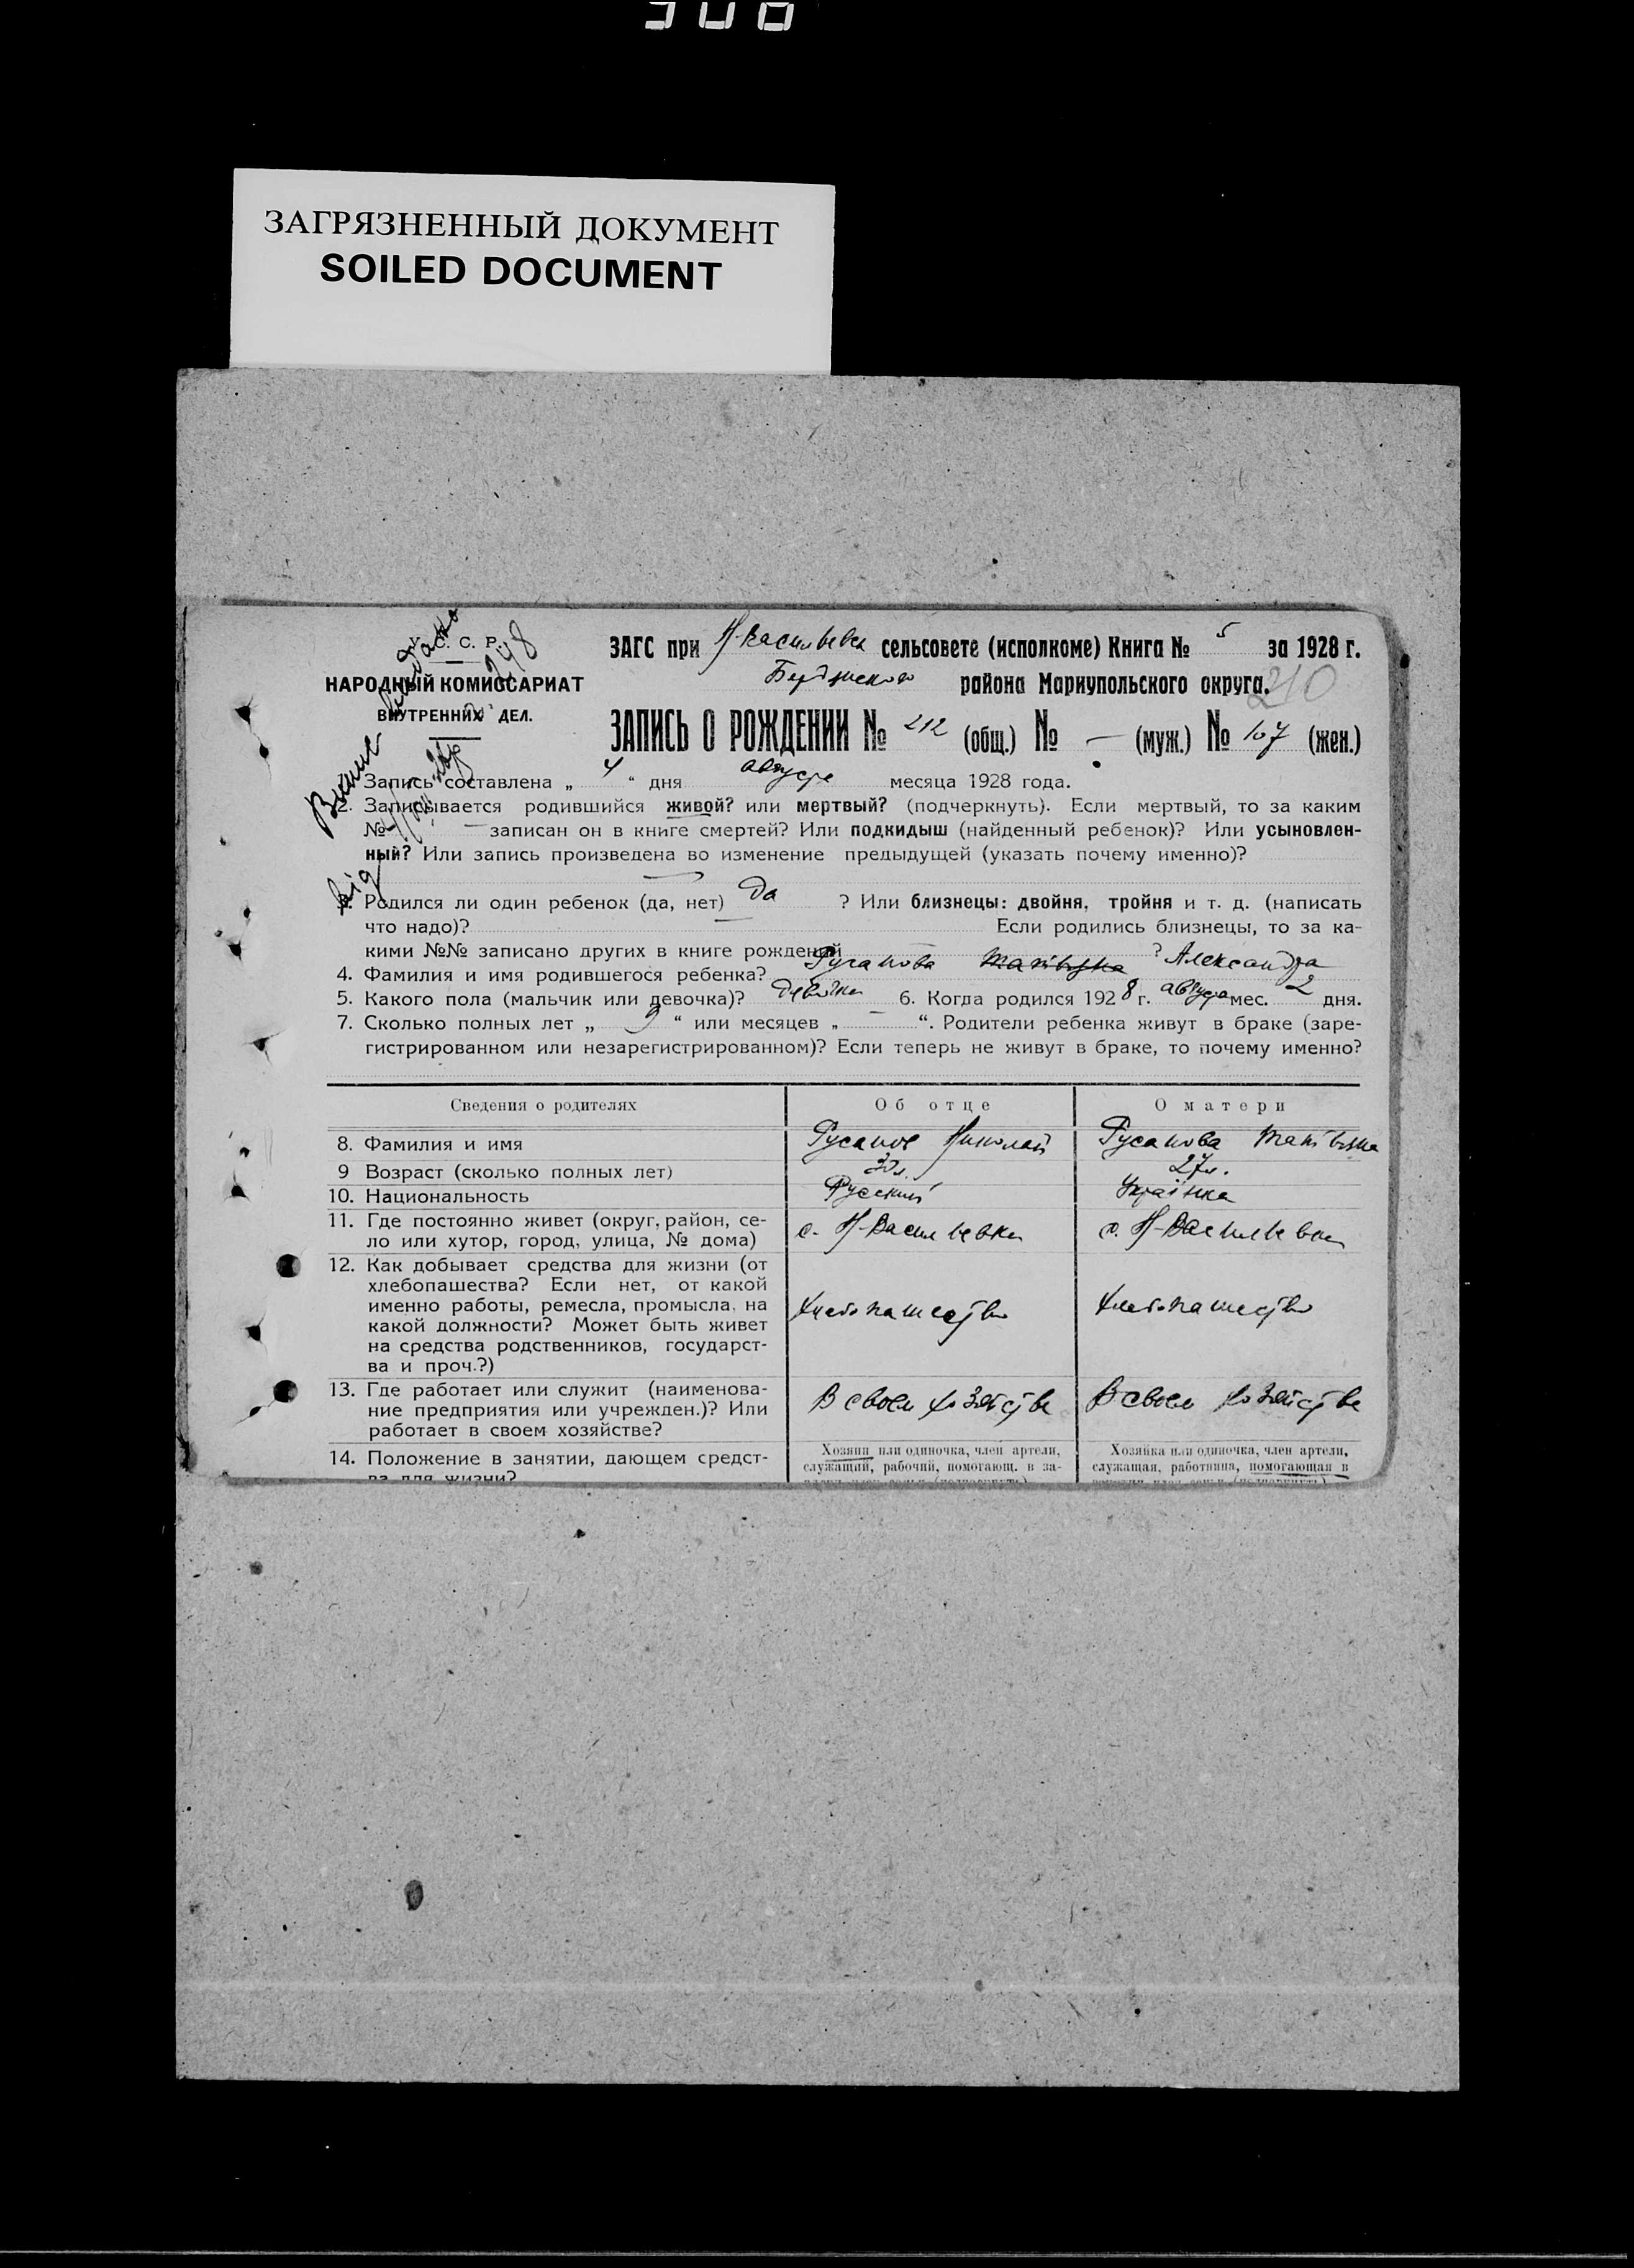 308
ЗАГРЯЗНЕННЫЙ ДОКУМЕНТ
SOILED DOCUMENT
С. С. Р.
НАРОДНЫЙ КОМИССАРИАТ
ВНУТРЕННИХ ДЕЛ.
ЗАГС при Н-Васильевск сельсовете (исполкоме) Книга № 5 за 1928 г.
района Мариупольского округа. 210
ЗАПИСЬ О РОЖДЕНИИ № 212 (общ.) № — (муж.) № 107 (жен.)
Запись составлена „ 4 “ дня августа месяца 1928 года.
2. Записывается родившийся живой? или мертвый? (подчеркнуть). Если мертвый, то за каким
№ — записан он в книге смертей? Или подкидыш (найденный ребенок)? Или усыновлен-
ный? Или запись произведена во изменение предыдущей (указать почему именно)?
Родился ли один ребенок (да, нет) да ? Или близнецы: двойня, тройня и т. д. (написать
что надо)? Если родились близнецы, то за ка-
кими №№ записано других в книге рождений ?
4. Фамилия и имя родившегося ребенка? Русанова Александра
5. Какого пола (мальчик или девочка)? девочка 6. Когда родился 1928 г. августа мес. 2 дня.
7. Сколько полных лет „ “ или месяцев „ — “. Родители ребенка живут в браке (заре-
гистрированном или незарегистрированном)? Если теперь не живут в браке, то почему именно?
Сведения о родителях Об отце О матери
8. Фамилия и имя Русанов Николай Русанова
9 Возраст (сколько полных лет) 30 л. 27 л.
10. Национальность Русский Українка
11. Где постоянно живет (округ, район, се-
ло или хутор, город, улица, № дома) с. Н-Васильевка с. Н-Васильевка
12. Как добывает средства для жизни (от
хлебопашества? Если нет, от какой
именно работы, ремесла, промысла, на
какой должности? Может быть живет
на средства родственников, государст-
ва и проч.?) Хлебопашество Хлебопашество
13. Где работает или служит (наименова-
ние предприятия или учрежден.)? Или
работает в своем хозяйстве? В своем хозяйстве В своем хозяйстве
14. Положение в занятии, дающем средст-
ва для жизни?
Хозяин или одиночка, член артели,
служащий, рабочий, помогающ. в за-
Хозяйка или одиночка, член артели,
служащая, работница, помогающая в